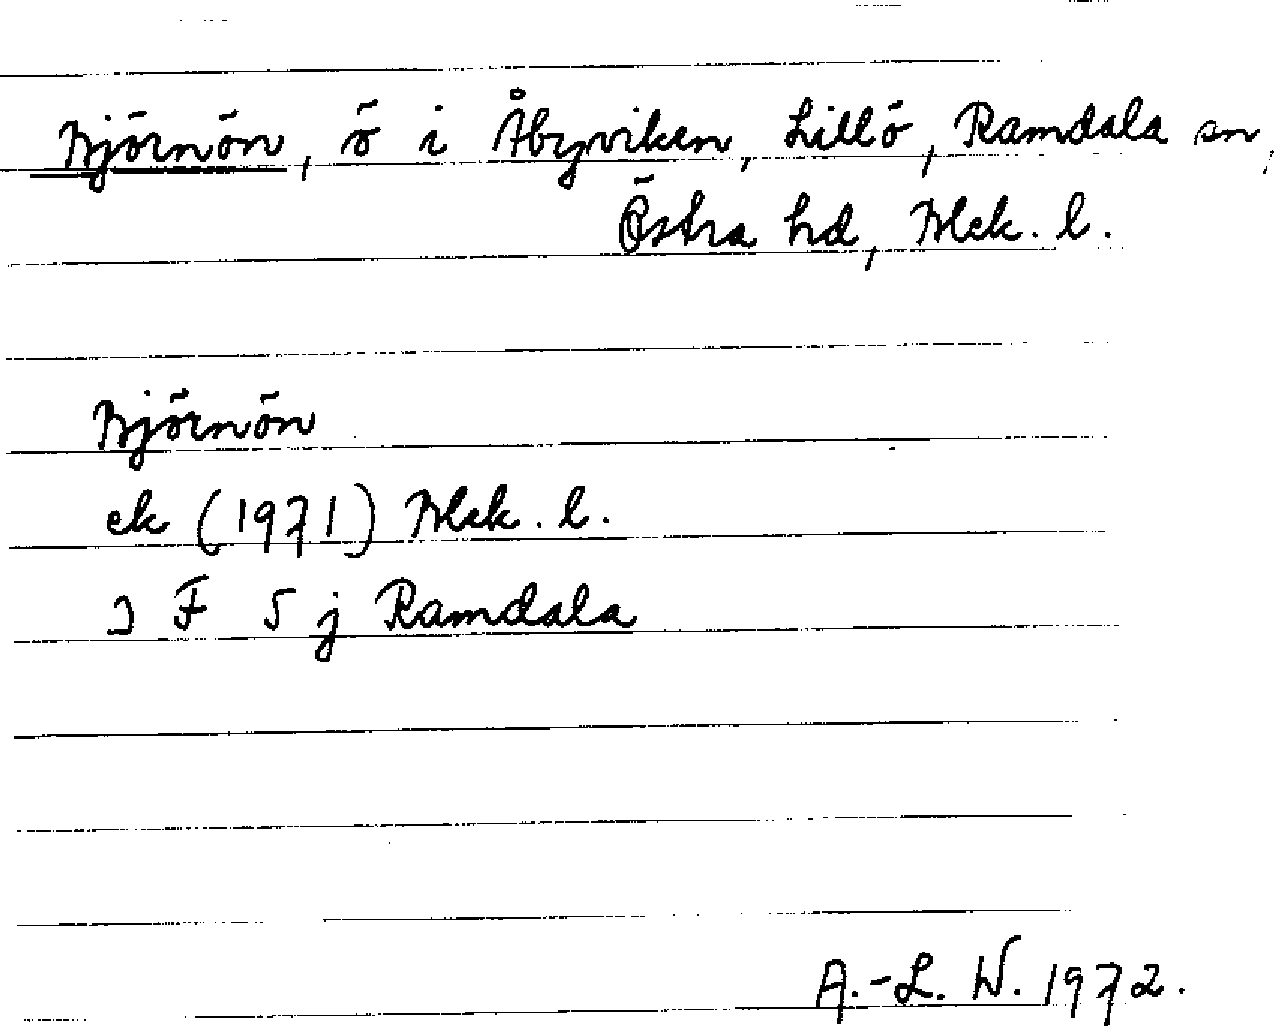 Björnön, ö i Åbyviken, Lillö, Ramdala sn,
Östra hd, Blek. l.
Björnön
ek (1971) Blek. l.
3 F 5 j Ramdala
A.-L. W. 1972.